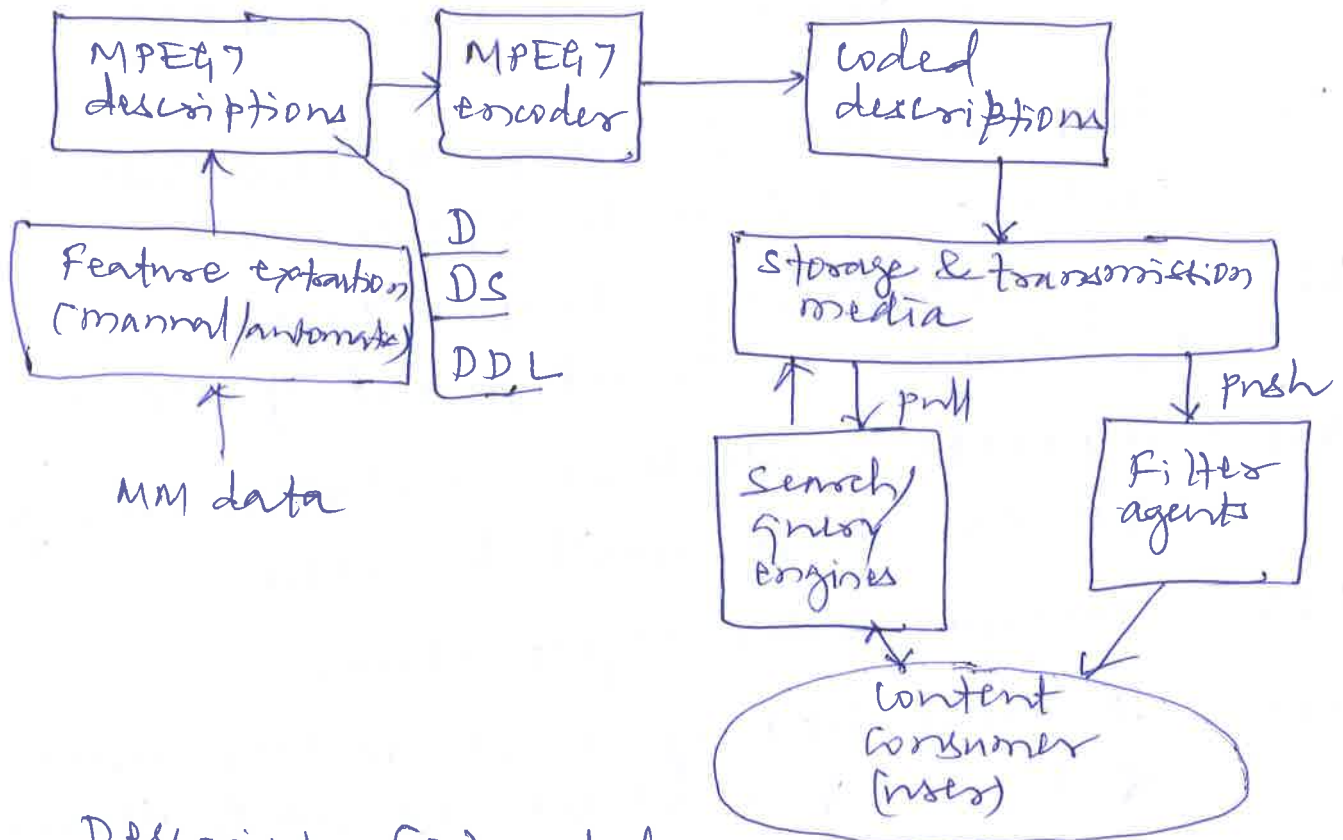 MPEG7
descriptions
MPEG7
encoder
coded
descriptions
Feature extraction
(manual/automatic)
D
DS
DDL
MM data
Storage & transmission
media
pull
push
Search/
query
engines
Filter
agents
Content
consumer
(user)